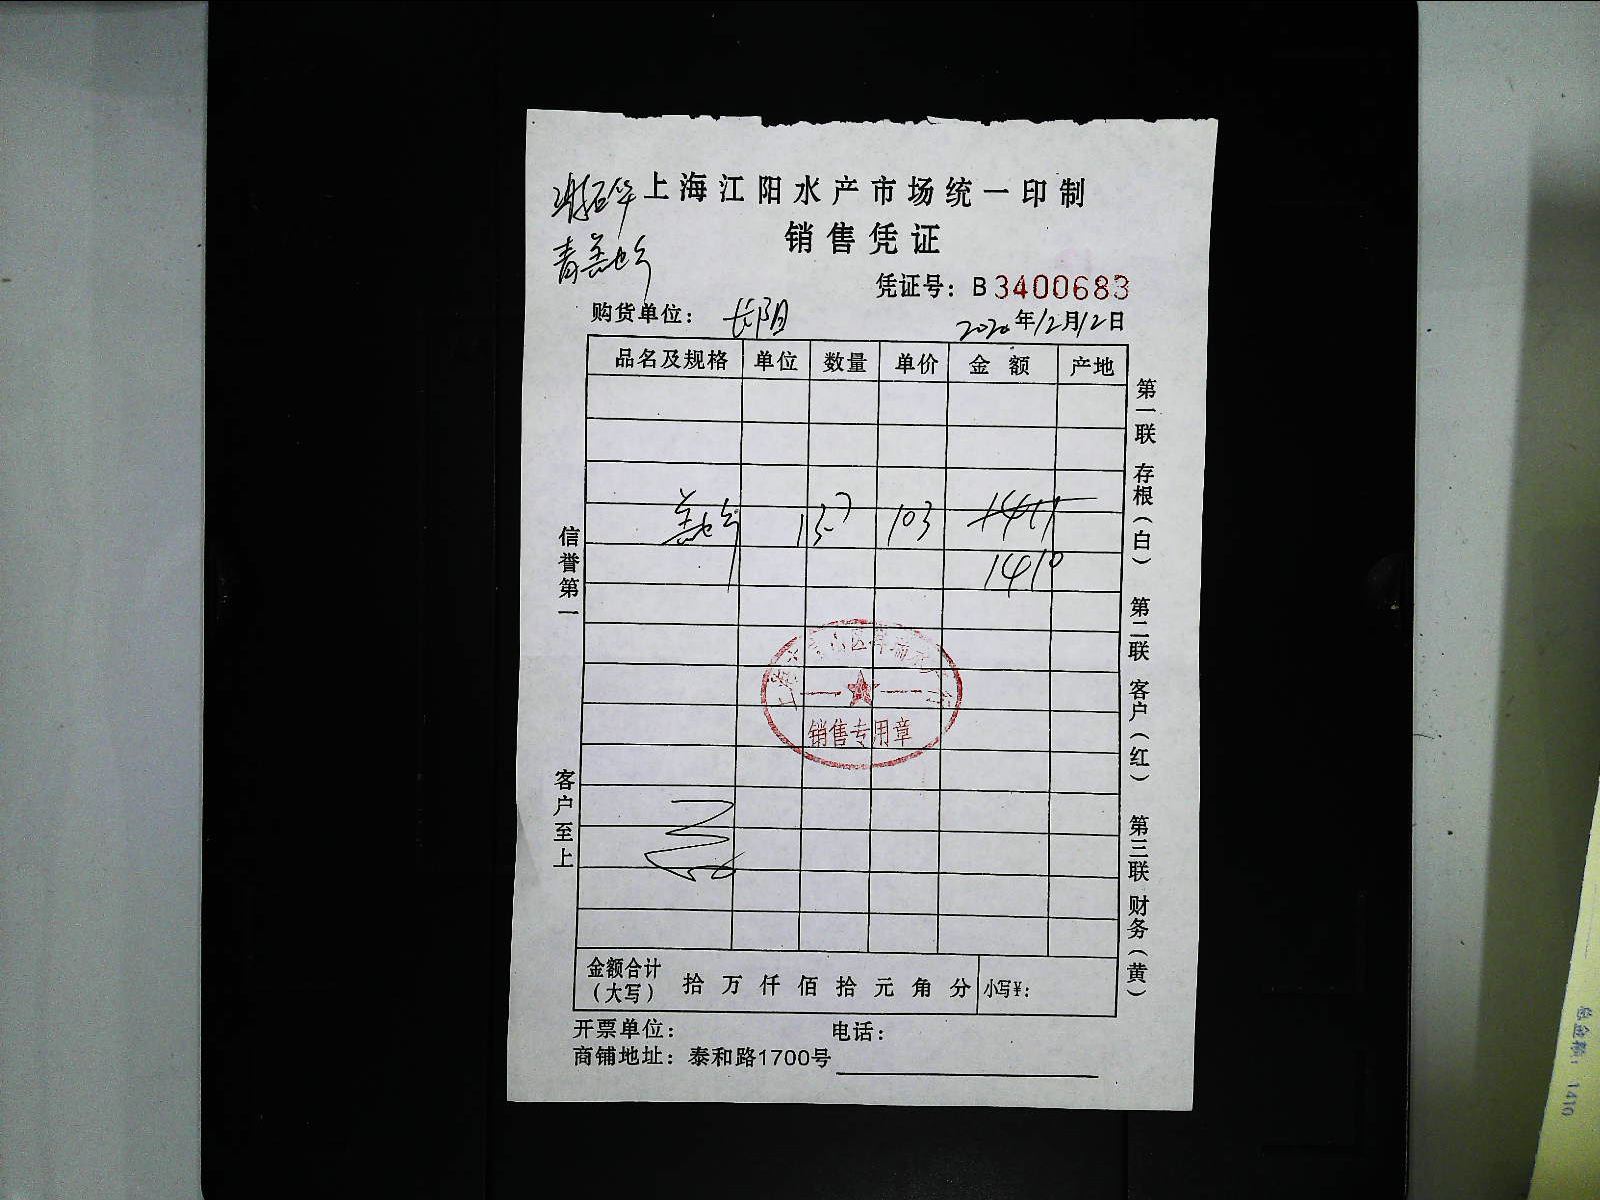 上海江阳水产市场统一印制
销售凭证
凭证号：B3400683
购货单位：长阳
2020年12月12日
品名及规格 单位 数量 单价 金额 产地
137 103 1411
1410
销售专用章
金额合计（大写） 拾 万 仟 佰 拾 元 角 分 小写¥：
开票单位： 电话：
商铺地址：泰和路1700号
信誉第一
客户至上
第一联 存根（白） 第二联 客户（红） 第三联 财务（黄）
总金额：1410